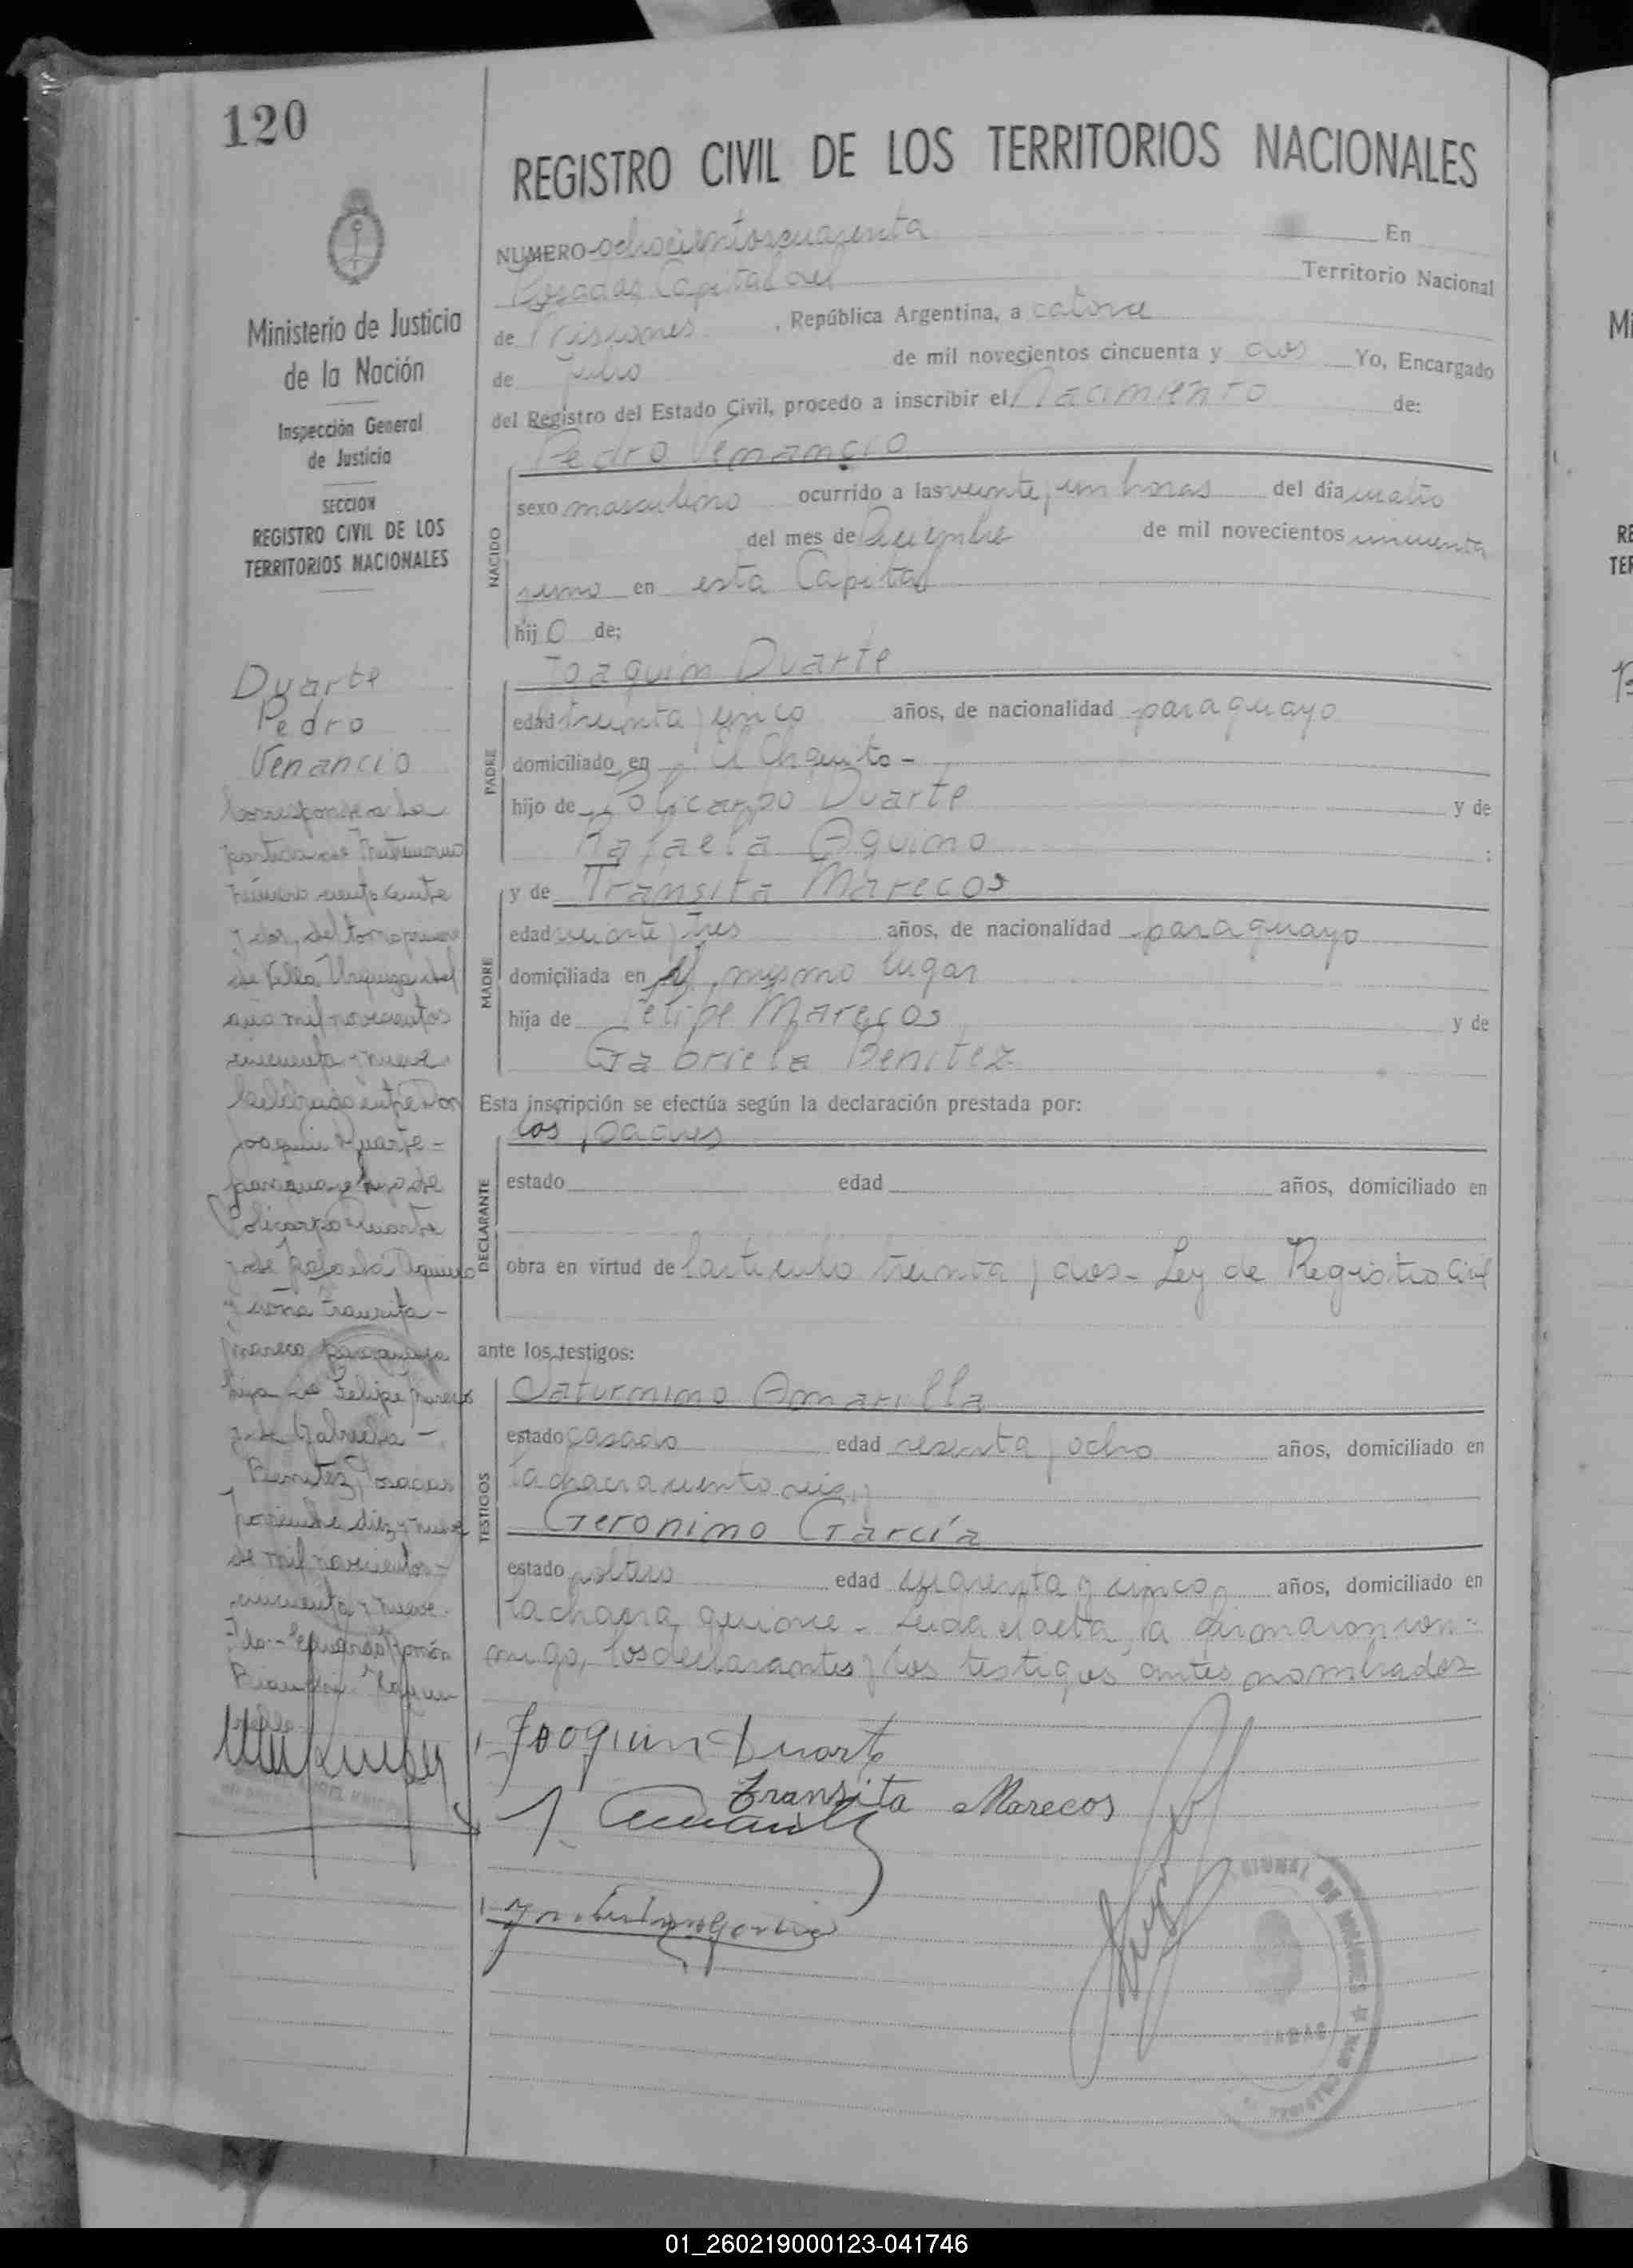 120
REGISTRO CIVIL DE LOS TERRITORIOS NACIONALES
Ministerio de Justicia
de la Nación
Inspección General
de Justicia
SECCION
REGISTRO CIVIL DE LOS
TERRITORIOS NACIONALES
Duarte
Pedro
Venancio
Corresponde a la
partida de
número ciento
y dos del tomo primero
de Villa Urquiza del
año mil novecientos
cincuenta y nueve
Celebrado entre Don
Joaquin Duarte =
paraguayo hijo de
Policarpo Duarte
y de Rafaela Aquino
y doña Transita -
Mareco paraguaya
hija de Felipe Mareco
y de Gabriela -
Benitez Posadas
diez y nueve
de mil novecientos -
cincuenta y nueve.
NUMERO ochocientoscuarenta En
Posadas Capital del Territorio Nacional
de Misiones, República Argentina, a catorce
de Julio de mil novecientos cincuenta y dos Yo, Encargado
del Registro del Estado Civil, procedo a inscribir el Nacimiento de:
NACIDO
Pedro Venancio
sexo masculino ocurrido a las veinte y un horas del día cuatro
del mes de Diciembre de mil novecientos cincuenta
y uno en esta Capital
hijo de;
PADRE
Joaquin Duarte
edad treinta y cinco años, de nacionalidad paraguayo
domiciliado en El Chquito -
hijo de Policarpo Duarte y de
Rafaela Aquino ;
MADRE
y de Tránsita Marecos
edad veinte y tres años, de nacionalidad paraguayo
domiciliada en el mismo lugar
hija de Felipe Marecos y de
Gabriela Benitez
Esta inscripción se efectúa según la declaración prestada por:
DECLARANTE
los padres
estado edad años, domiciliado en
obra en virtud de l'articulo treinta y dos - Ley de Registro Civil
ante los testigos:
TESTIGOS
Saturnino Amarilla
estado casado edad sesenta y ocho años, domiciliado en
la chacra ciento seis, y
Geronimo García
estado soltero edad cuarenta y cinco, años, domiciliado en
la chacra quince - Leida el acta, la firmaron con-
migo, los declarantes y los testigos antes nombrados
Jooquin Duarte
Transita Marecos
01_260219000123-041746